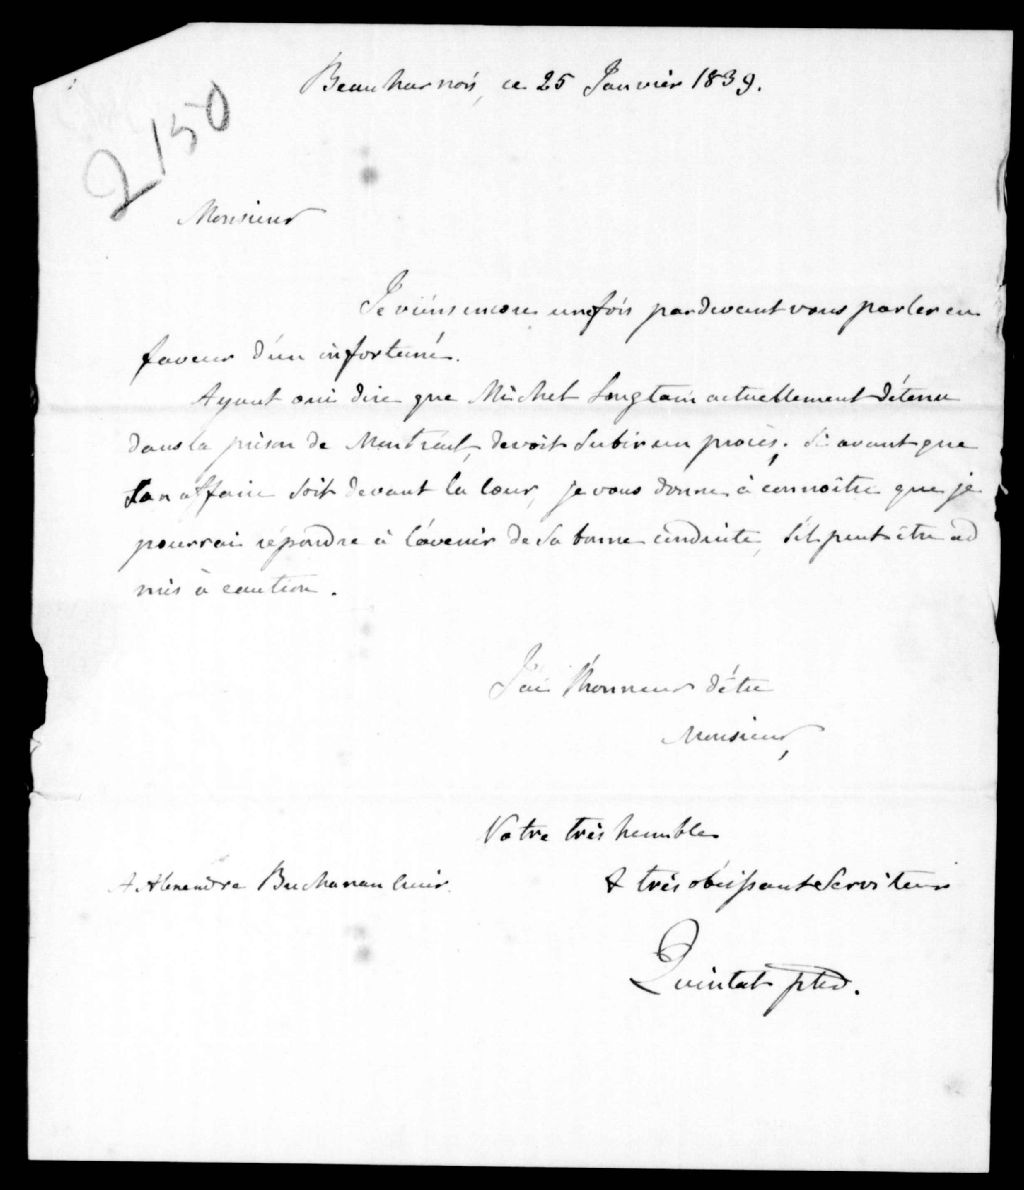 Beauharnois, ce 25 Janvier 1839.
2150
Monsieur
Je viens encore une fois pardevant vous parler en
faveur d'un infortuné.
Ayant oui dire que Michel Longtain actuellement détenu
dans la prison de Montréal, devoit subir un procès. Si avant que
son affaire soit devant la Cour, je vous donne à connoître que je
pourrai répondre à l'avenir de sa bonne conduite, s'il peut être ad
mis à caution.
J'ai l'honneur d'être
Monsieur,
Votre très humble
A Alexandre Buchanan Ecuir.
& très obéissant Serviteur
Quintal ptre.